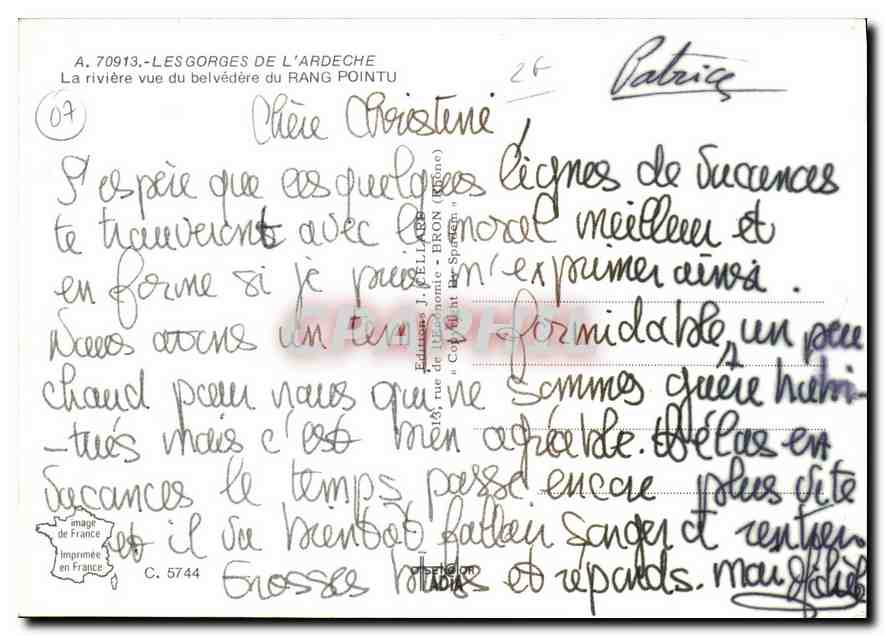 A. 70913.-LES GORGES DE L'ARDECHE
La rivière vue du belvédère du RANG POINTU
07
2F
Patrice
Chère Christine
J'espère que ces quelques lignes de vacances
te trouveront avec le moral meilleur et
en forme si je puis m'exprimer ainsi.
Nous avons un temps formidable, un peu
chaud pour nous qui ne sommes guère habi-
-tués mais c'est bien agréable. Hélas en
vacances le temps passe encore plus vite
et il va bientôt falloir songer à rentrer
Grosses bises et réponds.
Editions J. CELLARD
13, rue de l'Economie - BRON (Rhône)
« Copyright By Spadem »
image
de France
Imprimée
en France
C. 5744